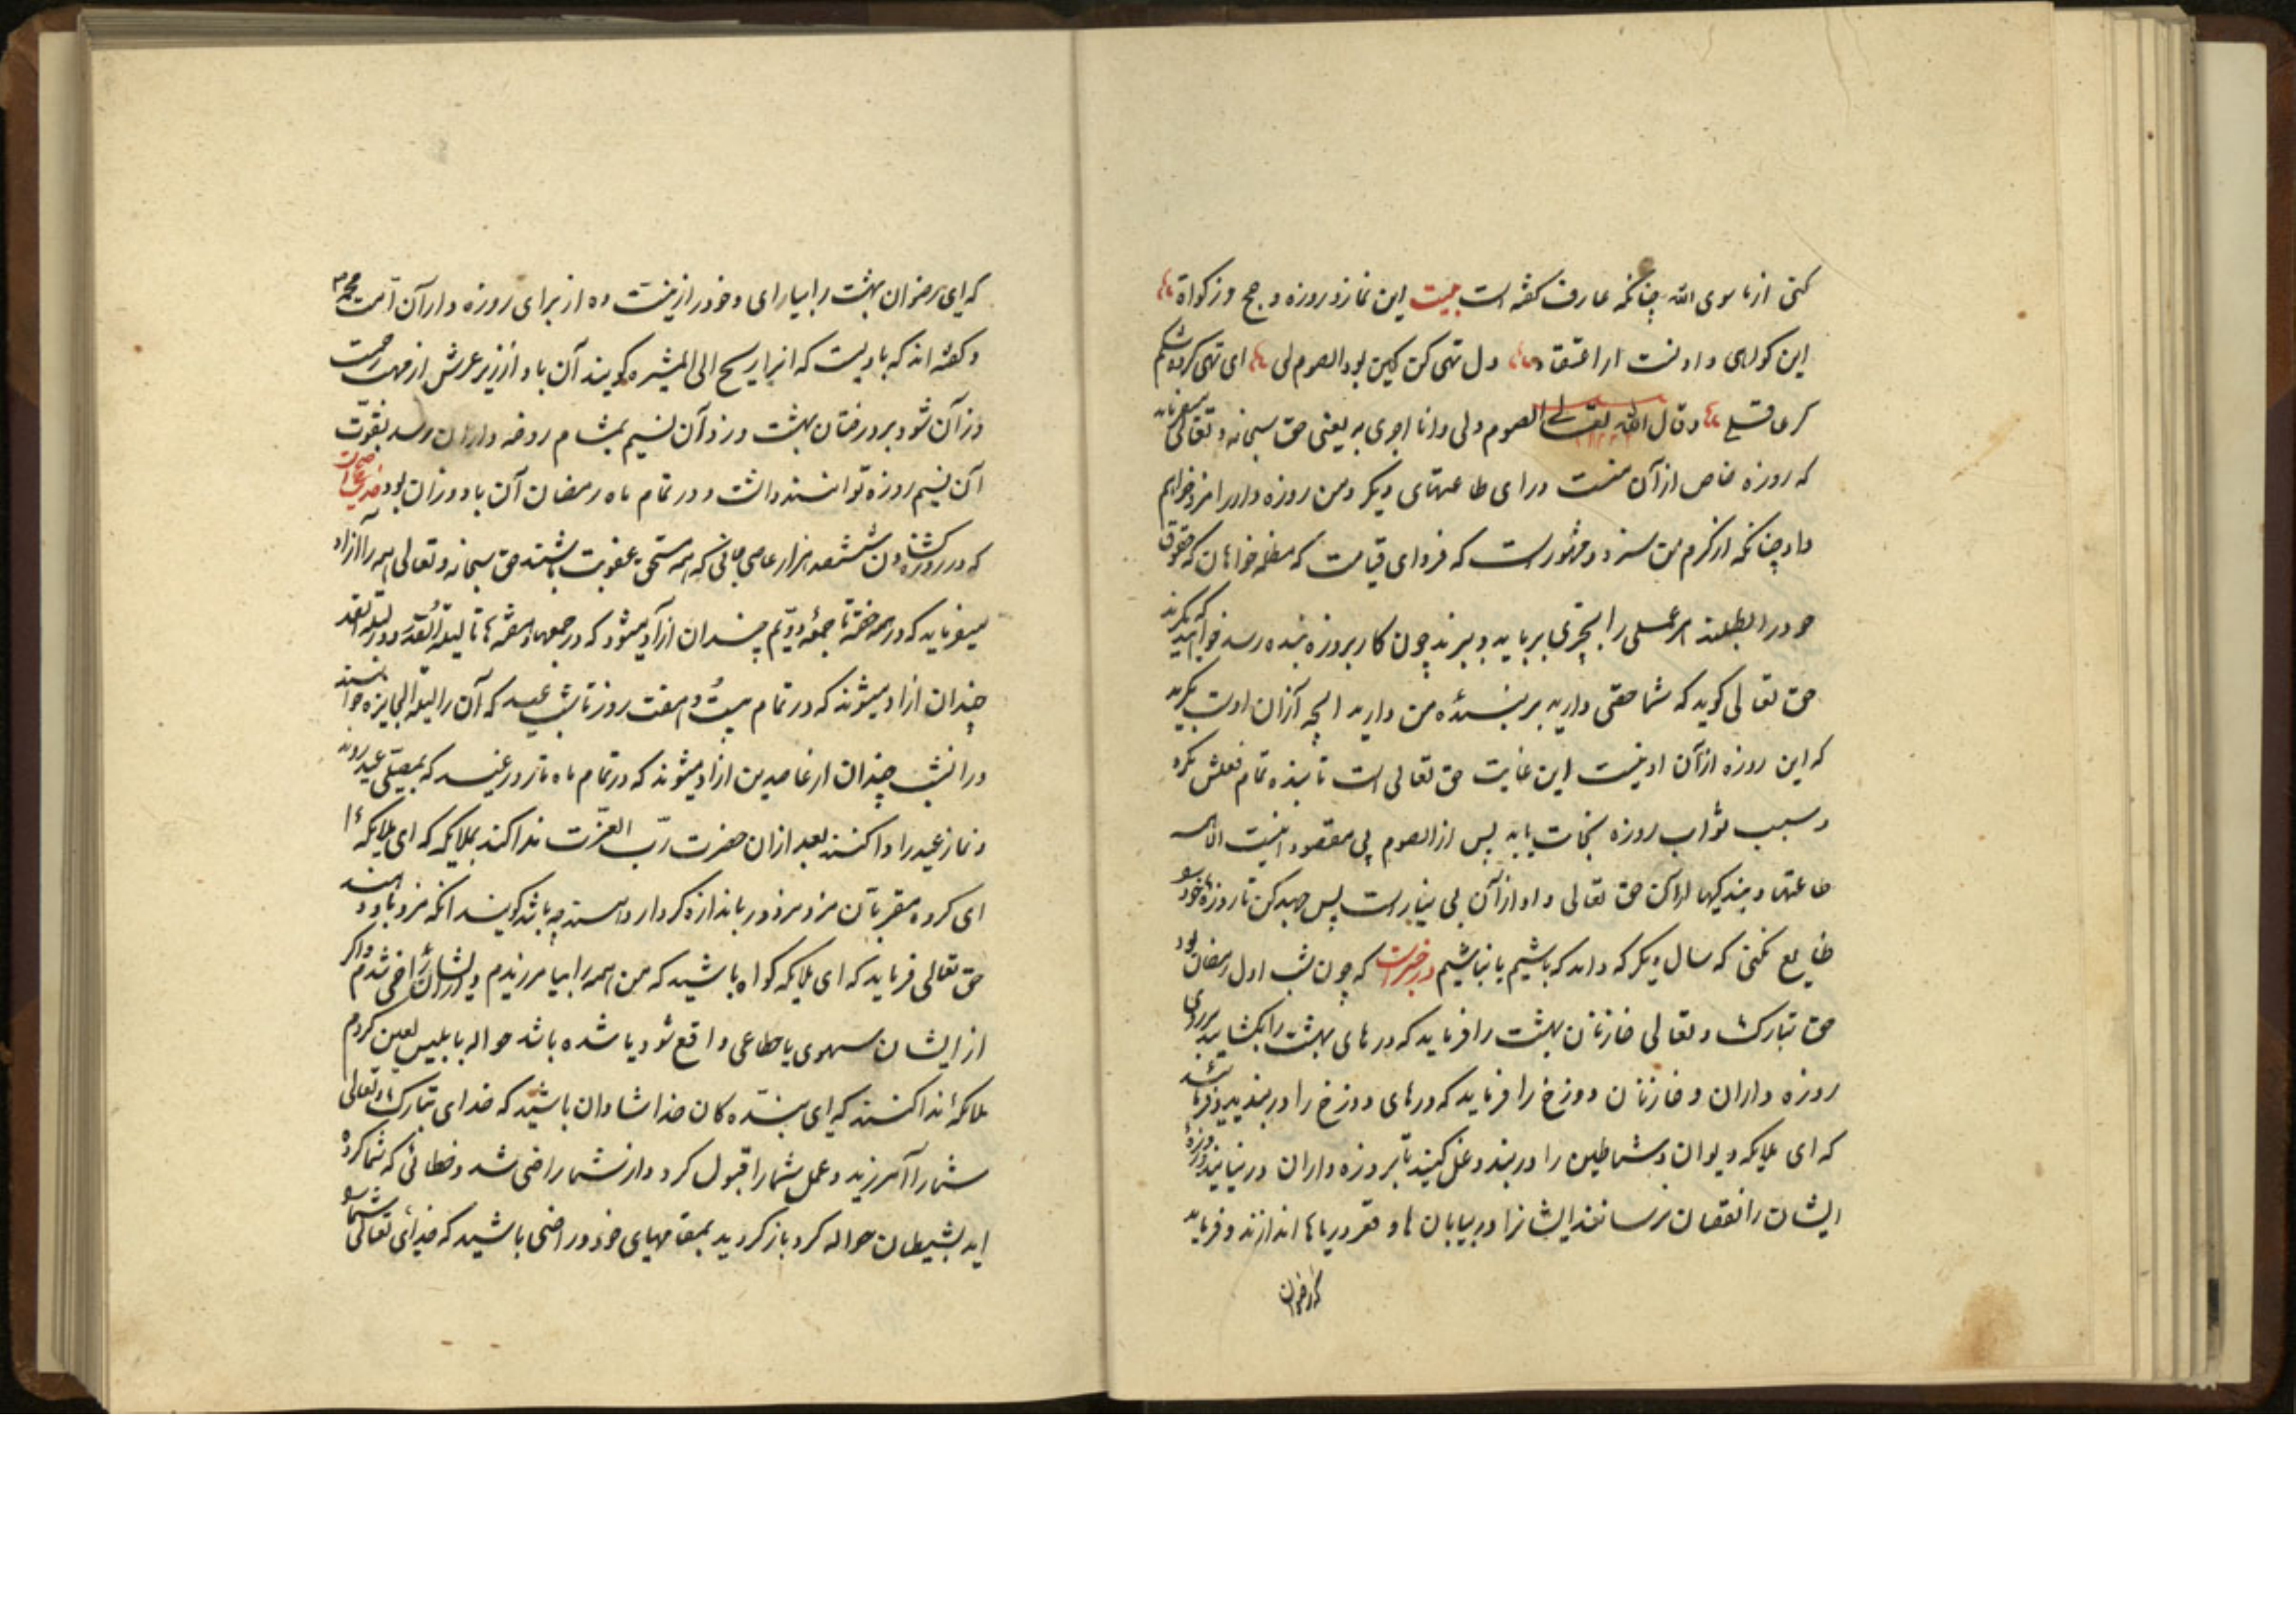 کنی از ما سوی الله چنانکه عارف کفته است بیت این نماز و روزه و حج و زکواة
این کواهی دادنست از اعتقاد دل تهی کن کین بود الصوم لی ای تهی کرده شکم
کر عاقلی وقال الله تعالی الصوم لی وانا اجزی به یعنی حق سبحانه و تعالی میفرماید
که روزه خاص از آن منست ورای طاعتهای دیکر و من روزه دار را مزد خواهم
داد چنانکه از کرم من سزد و مشهور است که فردای قیامت که مظلمه خواهان که حقوق
خود را بطلبند هر عملی را بر باید و ببرند چون کار بروزه بنده رسد خواهند که بکیرند
حق تعالی کوید که شما حقی دارید بر بندهٔ من دارید انچه از آن اوست بکیرید
که این روزه از آن او نیست این غایت حق تعالی است تا بنده تمام نکرد
و سبب ثواب روزه نجات یابد پس از الصوم لی مقصود اینست
طاعتها و بندکیها حق تعالی و او از آن بی نیاز است پس جهد کن تا روزهٔ خود
ضایع نکنی که سال دیکر که داند که باشیم یا نباشیم در خبر است که چون شب اول رمضان بود
حق تبارک و تعالی خازنان بهشت را فرماید که درهای بهشت را بکشایید بر روی
روزه داران و خازنان دوزخ را فرماید که درهای دوزخ را در بندید و فرماید
که ای ملایکه دیوان و شیاطین را در بند و غل کنید تا بروزه داران در نیایند و روزهٔ
ایشان را نقصان نرسانند ایشانرا در بیابان ها و قعر دریاها اندازند و فرماید
که رضوان
که ای رضوان بهشت را بیارای و خود را زینت ده از برای روزه داران امت محمد
و کفته اند که بادیست که انرا ریح المثیره کویند آن باد از زیر عرش از مهب رحمت
وزان شود بر درختان بهشت وزد آن نسیم بمشام روضه داران رسد بقوت
آن نسیم روزه توانند داشت و در تمام ماه رمضان آن باد وزان بود در خبر است
که در روزه کشادن ششصد هزار عاصی جانی که همه مستحق عقوبت باشند حق سبحانه و تعالی همه را ازاد
میفرماید که در همه هفته تا جمعهٔ دویم چندان ازاد میشود که در جمعها و هفته ها تا لیلة القدر و در لیلة القدر
چندان ازاد میشوند که در تمام بیست و هفت روز تا شب عید که آن را لیلة الجایزه خوانند
در انشب چندان از عاصیین ازاد میشوند که در تمام ماه تا روز عید که بمصلی عید روند
و نماز عید را ادا کنند بعد از ان حضرت رب العزت ندا کند بملایکه که ای ملایکهٔ ما
ای کروه مقربان مزد مزدور باندازه کردار او چه باشد کویند انکه مزد باو دهند
حق تعالی فرماید که ای ملایکه کواه باشید که من همه را بیامرزیدم و از ایشان راضی شدم و اکر
از ایشان سهوی یا خطاعی واقع شود یا شده باشد حواله بابلیس لعین کردم
ملایکهٔ ندا کنند که ای بنده کان خدا شادان باشید که خدای تبارک و تعالی
شما را آمرزید و عمل شما را قبول کرد و از شما راضی شد و خطائی که شما کرده
اید بشیطان حواله کرد باز کردید بمقامهای خود و راضی باشید که خدای تعالی شما را